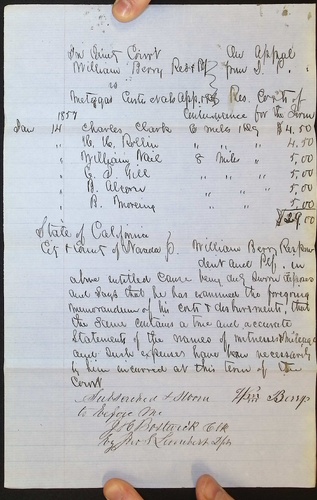 In County Court
William Berry Resp & Plf } On Appeal from J. P.
vs
Metzgar Curtis & als App. & Deft } Res. Costs of
1857
Jan 14 Charles Clark 6 miles 1 day $4.50
" H. H. Rollin " " " 4.50
" William Wail 8 Miles " 5.00
" G. D. Gill " " 5.00
" B. Alcorn " " 5.00
" R. Moreing " " 5.00
$29.00
State of California }
Cy & County of Nevada } William Berry Respon
dent and Plf. in
above entitled cause being duly Sworn deposes
and Says that he has examined the foregoing
memorandum of his costs & disbursments, that
the Same contains a true and accurate
Statements of the names of witnesses & mileage
and such expenses have been necessarily
by him incurred at this term of the
Court
Subscribed & Sworn Berry
to before me
Bostwick Clk
by Jno S Lambert Dpt